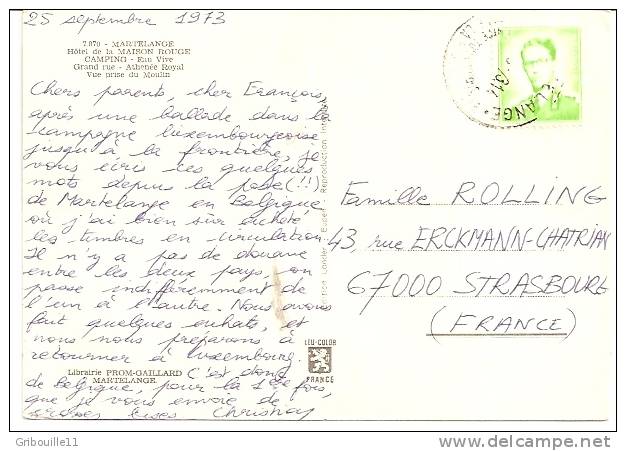 25 septembre 1973
7.070 - MARTELANGE
Hôtel de la MAISON ROUGE
CAMPING - Eau Vive
Grand rue - Athenée Royal
Vue prise du Moulin
Chers parents, cher François,
après une ballade dans la
campagne luxembourgeoise
jusqu'à la frontière, je
vous écris ces quelques
mots depuis la poste (!!)
de Martelange en Belgique
où j'ai bien sûr acheté
les timbres en circulation.
Il n'y a pas de douane
entre les deux pays, on
passe indifféremment de
l'un à l'autre. Nous avons
fait quelques achats, et
nous nous préparons à
retourner à Luxembourg.
Librairie PROM-GAILLARD
MARTELANGE
C'est donc
de Belgique, pour la 1ère fois,
que je vous envoie de
grosses bises
Famille ROLLING
43, rue ERCKMANN-CHATRIAN
67000 STRASBOURG
(FRANCE)
LEU-COLOR
FRANCE
Reproduction
ELANGE
Gribouille11
http://www.delcampe.net